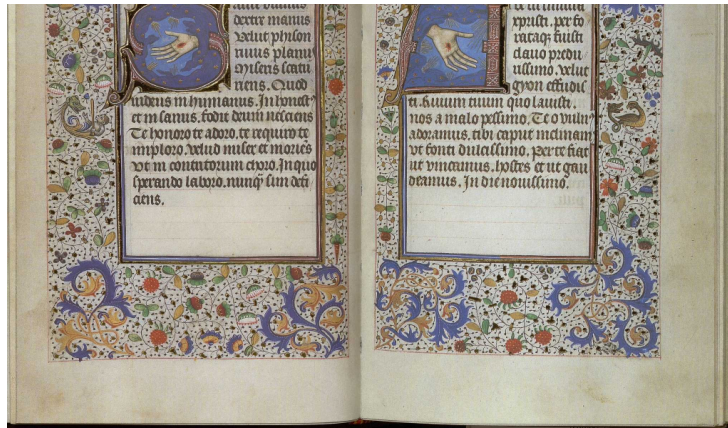 dextre manus
velut phison
riuus planu
miseris scatu
riens. Quod
iudeus inhumanus. Inhonest᷒
et insanus. fodit deum nesciens
Te honoro te adoro. te requiro te
imploro. velud miser et moriens
vt in contentorum choro. In quo
sperando laboro. nunq̄ sim defi
ciens.
xpristi. per fo
rataq; fuisti
clauo predu
rissimo. velut
gyon effudis
ti. riuum tuum quo lauisti.
nos a malo pessimo. Te o vuln᷒
adoramus. tibi caput inclinam᷒
ut fonti dulcissimo. Per te fiat
ut vincamus. hostes et ut gau
deamus. In die nouissimo.